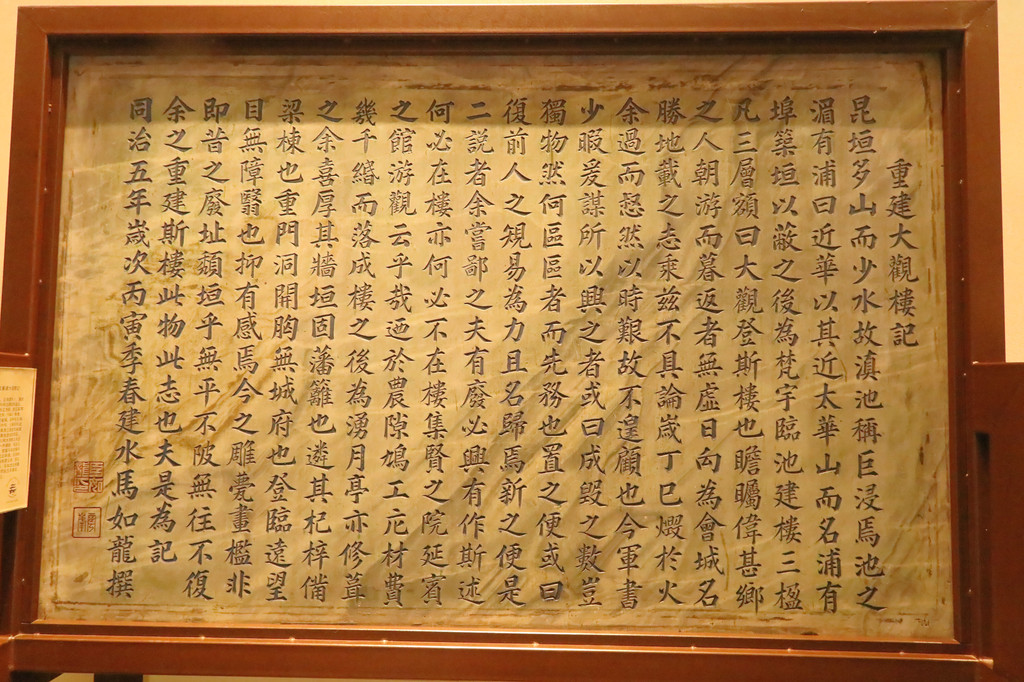 重建大觀樓記
昆垣多山而少水故滇池稱巨浸焉池之
湄有浦曰近華以其近太華山而名浦有
埠築垣以蔽之後為梵宇臨池建樓三楹
凡三層額曰大觀登斯樓也瞻矚偉甚鄉
之人朝游而暮返者無虛日向為會城名
勝地載之志乘茲不具論歲丁巳燬於火
余過而惄然以時艱故不遑顧也今軍書
少暇爰謀所以興之者或曰成毀之數豈
獨物然何區區者而先務也置之便或曰
復前人之規易為力且名歸焉新之便是
二説者余嘗鄙之夫有廢必興有作斯述
何必在樓亦何必不在樓集賢之院延賓
之館游觀云乎哉迺於農隙鳩工庀材費
幾千緡而落成樓之後為湧月亭亦修葺
之余喜厚其牆垣固藩籬也遴其杞梓備
梁棟也重門洞開胸無城府也登臨遠望
目無障翳也抑有感焉今之雕甍畫檻非
即昔之廢址頽垣乎無平不陂無往不復
余之重建斯樓此物此志也夫是為記
同治五年歲次丙寅季春建水馬如龍撰